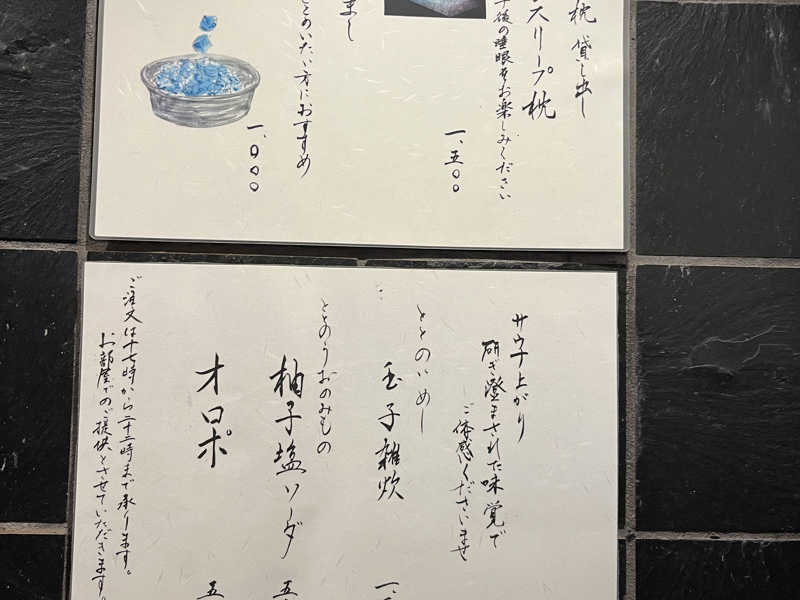 枕貸し出し
スリープ枕
後の睡眠をお楽しみください
一、五〇〇
まし
とめいたい方におすすめ
一、〇〇〇
サウナ上がり
研ぎ澄まされた味覚で
ご体感くださいませ
ととのいめし
玉子雑炊
一、
ととのうおのみもの
柚子塩ソーダ
五
オロポ
五
ご注文は十七時から二十三時まで承ります。
お部屋でのご提供とさせていただきます。